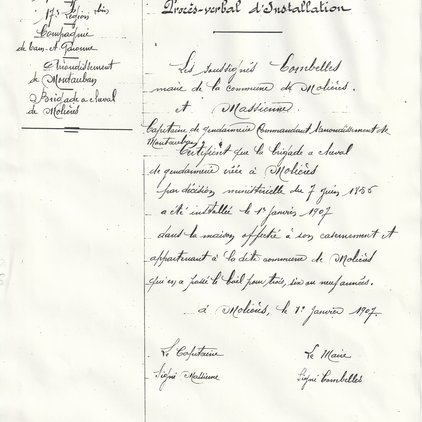 17e Légion bis
Compagnie
de Tarn-et-Garonne
Arrondissement
de Montauban
Brigade à cheval
de Molières
Procès-verbal d'Installation
Les soussignés Combelles
maire de la commune de Molières
et Massienne
Capitaine de gendarmerie Commandant l'arrondissement de
Montauban
Certifient que la brigade à cheval
de gendarmerie créée à Molières
par décision ministérielle du 7 juin
a été installée le 1er janvier 1907
dans la maison affectée à son casernement et
appartenant à la dite commune de Molières
qui en a passé le bail pour trois, six ou neuf années.
à Molières, le 1er janvier 1907.
Le Capitaine
Signé Massienne
Le Maire
Signé Combelles